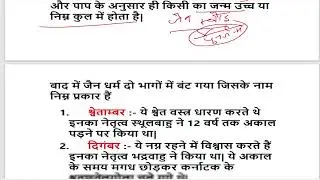 और पाप के अनुसार ही किसी का जन्म उच्च या
निम्न कुल में होता है|
जैन
बाद में जैन धर्म दो भागों में बंट गया जिसके नाम
निम्न प्रकार हैं
1. श्वेताम्बर :- ये श्वेत वस्त्र धारण करते थे
इनका नेतृत्व स्थूलबाहु ने 12 वर्ष तक अकाल
पड़ने पर किया था|
2. दिगंबर :- ये नग्न रहने में विश्वास करते हैं
इनका नेतृत्व भद्रवाहु ने किया था| ये अकाल
के समय मगध छोड़कर कर्नाटक के